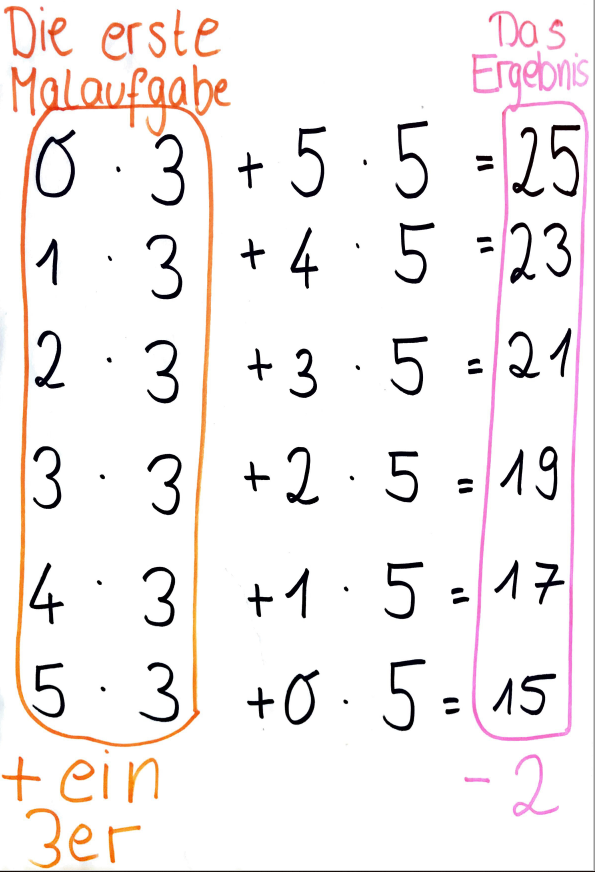 Die erste
Malaufgabe
Das
Ergebnis
0 · 3 + 5 · 5 = 25
1 · 3 + 4 · 5 = 23
2 · 3 + 3 · 5 = 21
3 · 3 + 2 · 5 = 19
4 · 3 + 1 · 5 = 17
5 · 3 + 0 · 5 = 15
+ ein
3er
- 2